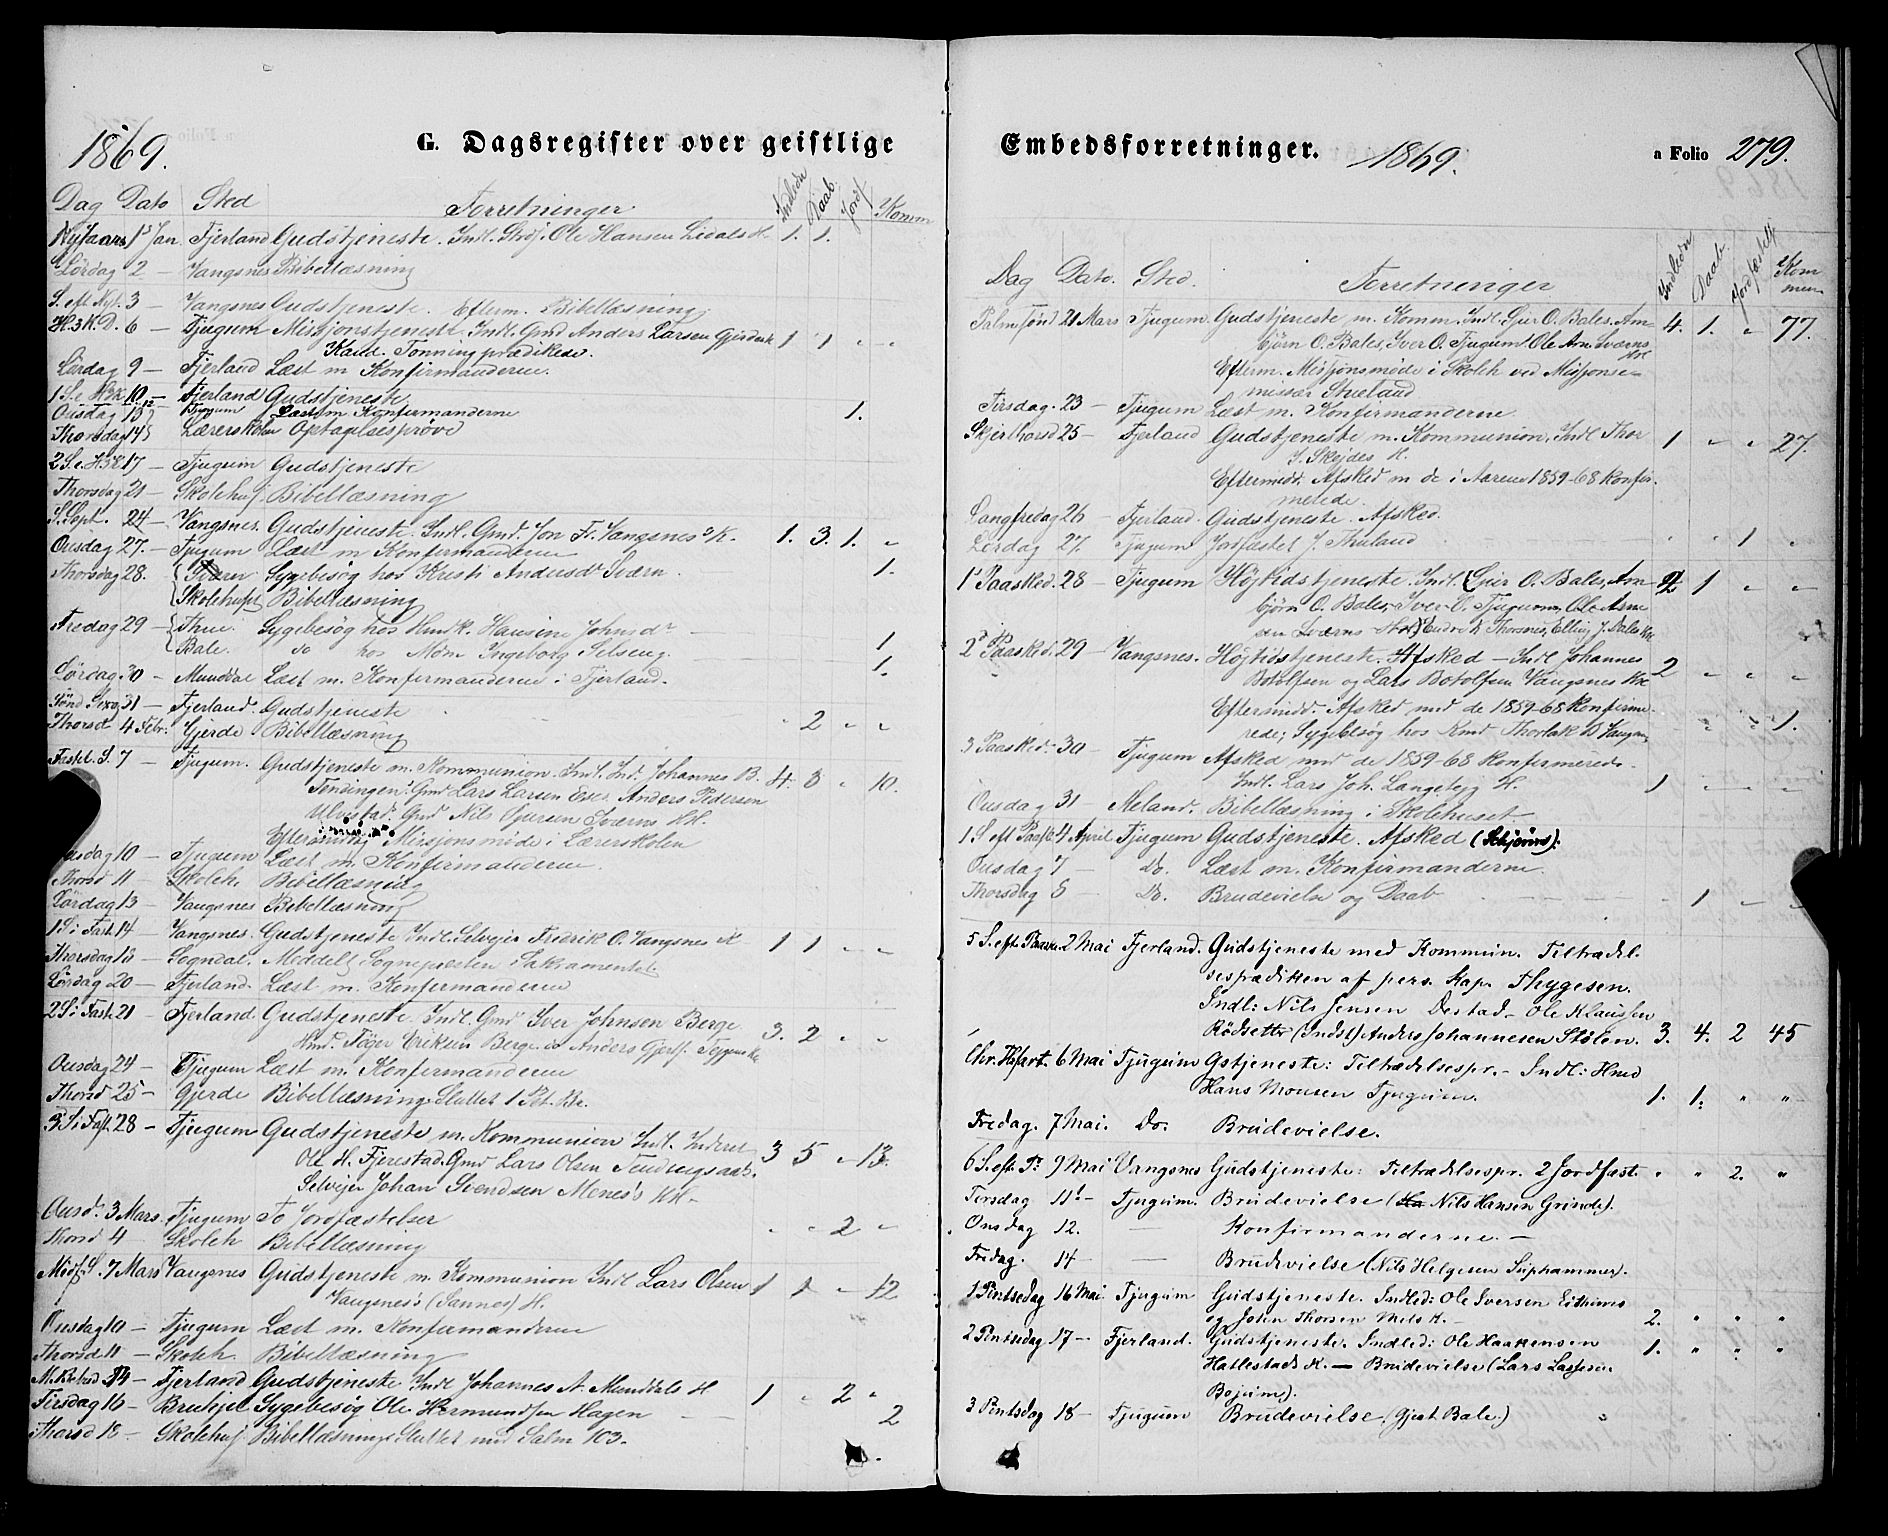 1869.
G. Dagsregister over geistlige
Dag Dato Sted Forretninger Indledn Daab. Jordf Komm
Nytaars 1 Jan Fjerland Gudstjeneste. Indl. Ole Hansen H. 1. 1.
Lördag 2 — Vangsnes Bibellæsning
S. eft Nyt. 3 — Vangsnes Gudstjeneste. Efterm. Bibellæsning
H. 3 K. D. 6 — Tjugum Missjonstjeneste. Indl. Gmd Anders Larsen 1 1 " "
Kand. Tonning prædikede.
Lördag 9 — Fjerland Læst m Konfirmanderne.
1 S. e H3K 10 — Fjerland Gudstjeneste
Onsdag 13 Tjugum Læst m Konfirmanderne 1.
Thorsdag 14 Lærerskolen Optagelsesprøve
2 S. e. H3K 17 — Tjugum Gudstjeneste
Thorsdag 21 — Skolehus Bibellæsning
S. Sept. 24 — Vangsnes. Gudstjeneste. Indl. Gmd. Jon Fr. Vangsnes's K. 1. 3. 1. "
Onsdag 27. — Tjugum Læst m Konfirmanderne
Thorsdag 28. Sværen Sygebesøg hos Kristi Andersdr Sværn. 1.
Skolehuset Bibellæsning
Fredag 29 — Thue Sygebesøg hos Hansine Johnsdr
Bale. do hos Mdm Ingeborg Selseng. 1
Lördag 30 — Munddal Læst m. Konfirmanderne i Fjerland. 1.
Sönd Sexa. 31 — Fjerland. Gudstjeneste
Thorsd. 4 Febr. Gjerde Bibellæsning " 2 " "
Fastel. S. 7 — Tjugum. Gudstjeneste m. Kommunion. Indl. Ind. Johannes B. 4. 3 " 10.
Tendingen. Gmd Lars Larsen Ese. Anders Pedersen
Ulvestad. Gmd Nils Sværns KK.
Eftermiddag Missjonsmøde i Lærerskolen
Onsdag 10 — Tjugum Læst m. Konfirmanderne.
Thorsd 11 — Skoleh. Bibellæsning
Lördag 13 — Vangsnes Bibellæsning
1 S i Fast. 14 — Vangsnes. Gudstjeneste Indl. Selvejer Fredrik O. Vangsnes K 1 1 " "
Thorsdag 18 — Sogndal. Meddelt Sognepræsten Sakramentet.
Lördag 20 — Fjerland. Læst m. Konfirmanderne
2 S i Fast. 21 — Fjerland. Gudstjeneste. Indl. Gmd Iver Johnsen Berge 3. 2 " "
Hmd. Töger Eriksen Berge. do Anders
Onsdag 24 — Tjugum Læst m. Konfirmanderne
Thorsd 25 — Gjerde Bibellæsning Sluttet 1 Pet. Br.
3 S i Fast. 28 — Tjugum Gudstjeneste m. Kommunion Indl. Inderst 3 5 " 13.
Ole H. Fjerestad. Gmd Lars Olsen
Selvejer Johan Svendsen Menes's KK.
Onsd. 3 Mars. Tjugum To Jordfæstelser " " 2 "
Thorsd 4 Skoleh Bibellæsning
Midf. S. 7 Mars Vangsnes Gudstjeneste m. Kommunion Indl. Lars Olsen 1 1 " 12
Vangsnes's (Sannes) H.
Onsdag 10 — Tjugum Læst m. Konfirmanderne
Thorsd 11 — Skoleh. Bibellæsning
14 — Fjerland Gudstjeneste Indl Johannes A. Munddals H 1 " 2 "
Tirsdag 16 — Sygebesøg Ole Hermundsen Hagen 2
Thorsd 18 — Skolehus Bibellæsning Sluttet med Salm 103.
Embedsforretninger. 1869. a Folio 279.
Dag Dato. Sted. Forretninger Indledn Daab. Jordfæstelse Kommun
Palmesönd 21 Mars Tjugum. Gudstjeneste m. Komm. Indl. Gjer O. Bales. Am- 4. 1. " 77.
björn O. Bales, Iver O. Tjugum, Ole Arn. Sværns
Efterm. Missjonsmøde i Skoleh ved Missjonse-
missær Stueland
Tirsdag. 23 — Tjugum Læst m. Konfirmanderne
Skjerthorsd 25 — Fjerland Gudstjeneste m. Kommunion. Indl Thor 1 " " 27.
I. Skejdes H.
Eftermidd. Afsked m de i Aarene 1859–68 Konfir-
merede.
Langfredag 26 — Fjerland. Gudstjeneste. Afsked.
Lördag 27. Tjugum Jordfæstet J. Thueland " " 1 "
1 Paasked. 28 — Tjugum Höjtidstjeneste. Indl (Gjer O. Bales, Am- 2 1 " "
björn O. Bales, Iver O. Tjugum, Ole Arne
sen Sværns) Endre K Thorsnes, Elling J. Dales KK
2 Paasked. 29 — Vangsnes. Höjtidstjeneste. Afsked — Indl Johannes 2 " " "
Botolfsen og Lars Botolfsen Vangsnes KK
Eftermidd. Afsked med de 1859–68 Konfirme-
rede; Sygebesøg hos Knud Thorlak B Vangsn. " " " 1.
3 Paasked. 30 — Tjugum Afsked med de 1859–68 Konfirmerede.
Indl. Lars Joh. Langetejg H. 1 " " "
Onsdag 31 — Meland. Bibellæsning i Skolehuset
1 S eft Paask 4 April Tjugum Gudstjeneste. Afsked (Schjørns).
Onsdag 7 — Do. Læst m. Konfirmanderne.
Thorsdag 8 — Do. Brudevielse og Daab " 1 " "
5 S. eft. Paaske. 2 Mai Fjerland. Gudstjeneste med Kommun. Tiltrædel-
sesprædiken af pers. Kap. Thygesen.
Indl: Nils Jensen Ole Klausen
Rödseter (Indst) Anders Johannesen Stölen. 3. 4. 2 45
Chr. Hfart. 6 Mai Tjugum Gstjeneste: Tiltrædelsespr. — Indl: Hmd
Hans Monsen Tjugum. 1. 1. " "
Fredag. 7 Mai. Do. Brudevielse.
6 S. eft. P. 9 Mai Vangsnes Gudstjeneste: Tiltrædelsespr. 2 Jordfæst. " " 2. "
Tirsdag 11 — Tjugum. Brudevielse (Nils Hansen Grinde).
Onsdag 12. — Konfirmanderne. —
Fredag. 14 — — Brudevielse (Nils Helgesen Suphammer).
1 Pintsedag 16 Mai Tjugum Gudstjeneste. Indled: Ole Iversen Eithuns
og John Thorsen Mels K. — 2. " " "
2 Pintsedag 17 — Fjerland. Gudstjeneste. Indled: Ole Haakensen 1. " " "
Hatlestads K. — Brudevielse (Lars Lassesen
Bøjum).
3 Pintsdag 18 — Tjugum Brudevielse (Gjert Bale.)